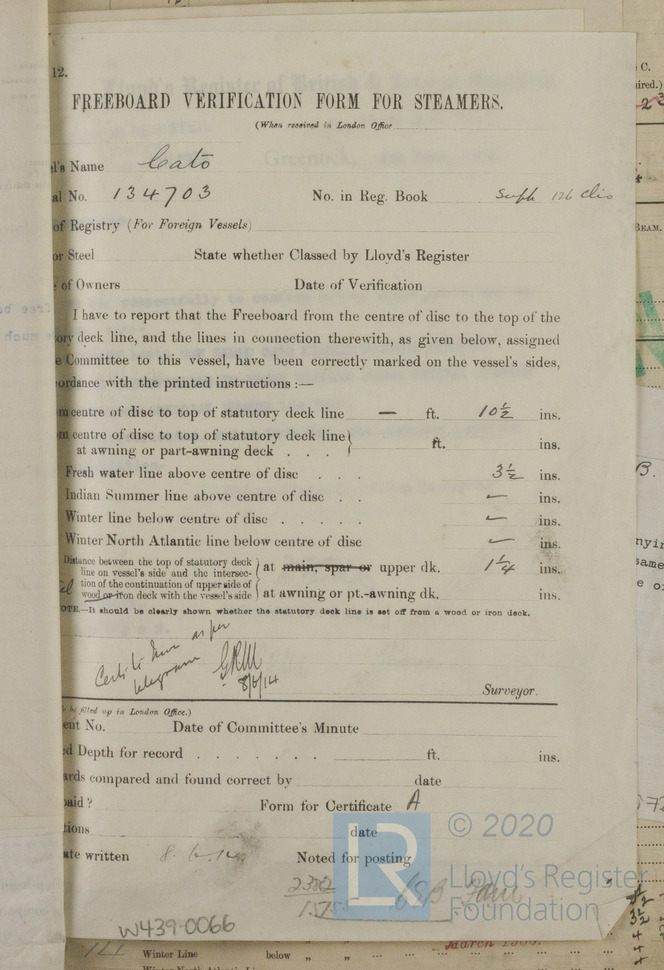 12.
FREEBOARD VERIFICATION FORM FOR STEAMERS.
(When received in London Office
l's Name Cato
al No. 134703 No. in Reg. Book Suph 126 Clio
of Registry (For Foreign Vessels)
or Steel State whether Classed by Lloyd's Register
of Owners Date of Verification
I have to report that the Freeboard from the centre of disc to the top of the
ory deck line, and the lines in connection therewith, as given below, assigned
e Committee to this vessel, have been correctly marked on the vessel's sides,
ordance with the printed instructions :—
m centre of disc to top of statutory deck line — ft. 10½ ins.
m centre of disc to top of statutory deck line
at awning or part-awning deck . . . ft. ins.
Fresh water line above centre of disc . . . 3½ ins.
Indian Summer line above centre of disc . . ins.
Winter line below centre of disc . . . . . ins.
Winter North Atlantic line below centre of disc ins.
Distance between the top of statutory deck
line on vessel's side and the intersec-
tion of the continuation of upper side of
wood or iron deck with the vessel's side
at main, spar or upper dk. 1¼ ins.
at awning or pt.-awning dk. ins.
OTE.—It should be clearly shown whether the statutory deck line is set off from a wood or iron deck.
as per
telegram
GRM
8/6/14
Surveyor.
be filled up in London Office.)
ent No. Date of Committee's Minute
ed Depth for record . . . . . . . ft. ins.
ards compared and found correct by date
paid ? Form for Certificate A
tions date
ate written 8.6.14 Noted for posting
W439-0066
© 2020
LR
Lloyd's Register
Foundation
C.
ired.)
BEAM.
B.
Winter Line below „ „
March